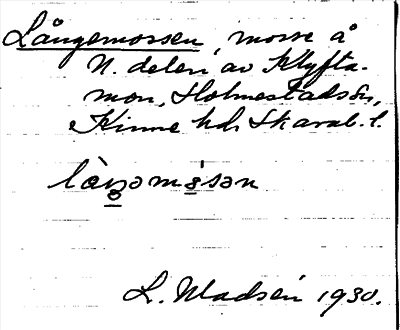 Långemossen, mosse å
N. delen av Klyfta-
mon, Holmestads sn,
Kinne hd. Skarab. l.
làŋəmòsən
L. Madsén 1930.